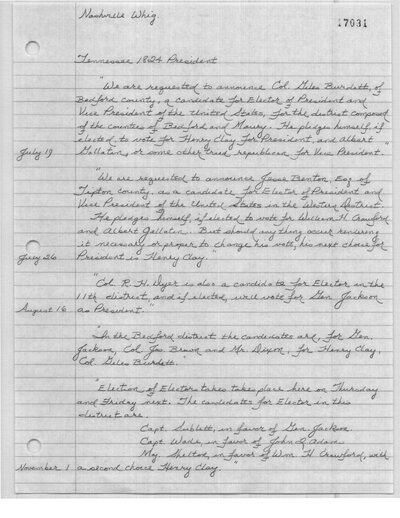 Nashville Whig.
17031
Tennessee 1824 President
"We are requested to announce Col. Giles Burdett, of
Bedford county, a candidate for Elector of President and
Vice President of the United States, for the district composed
of the counties of Bedford and Maury. He pledges himself, if
elected, to vote for Henry Clay for President, and Albert
July 19 Gallatin, or some other tried republican for Vice President."
"We are requested to announce Jesse Benton, Esq. of
Tipton county, as a candidate for Elector of President and
Vice President of the United States in the Western District.
He pledges himself, if elected to vote for William H Crawford
and Albert Gallatin. But should anything occur rendering
it necessary or proper to change his vote, his next choice for
July 26 President is Henry Clay."
"Col. R. H. Dyer is also a candidate for Elector in the
11th district, and if elected, will vote for Gen. Jackson
August 16 as President."
"In the Bedford district the candidates are, for Gen.
Jackson, Col. Jas. Brown and Mr. Dixon, for Henry Clay,
Col. Giles Burdett."
"Election of Electors takes takes place here on Thursday
and Friday next. The candidates for Elector in this
district are.
Capt. Sublett, in favor of Gen. Jackson.
Capt. Wade, in favor of John Q Adams
Maj. Shelton, in favor of Wm. H. Crawford, with
November 1 a second choice Henry Clay."